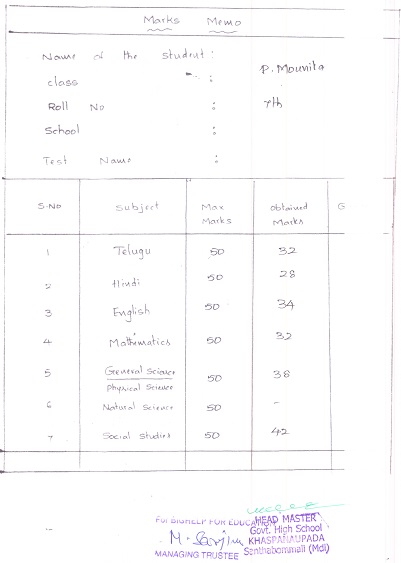 Marks Memo
Name of the student : P. Mounita
class :
Roll No : 7th
School :
Test Name :
S.No Subject Max Marks Obtained Marks G
1 Telugu 50 32
2 Hindi 50 28
3 English 50 34
4 Mathematics 50 32
5 General Science 50 38
Physical Science
6 Natural Science 50 -
7 Social Studies 50 42
For BIGHELP FOR EDUCATION
MANAGING TRUSTEE
HEAD MASTER
Govt. High School
KHASPANAUPADA
Santhabommali (Mdl)